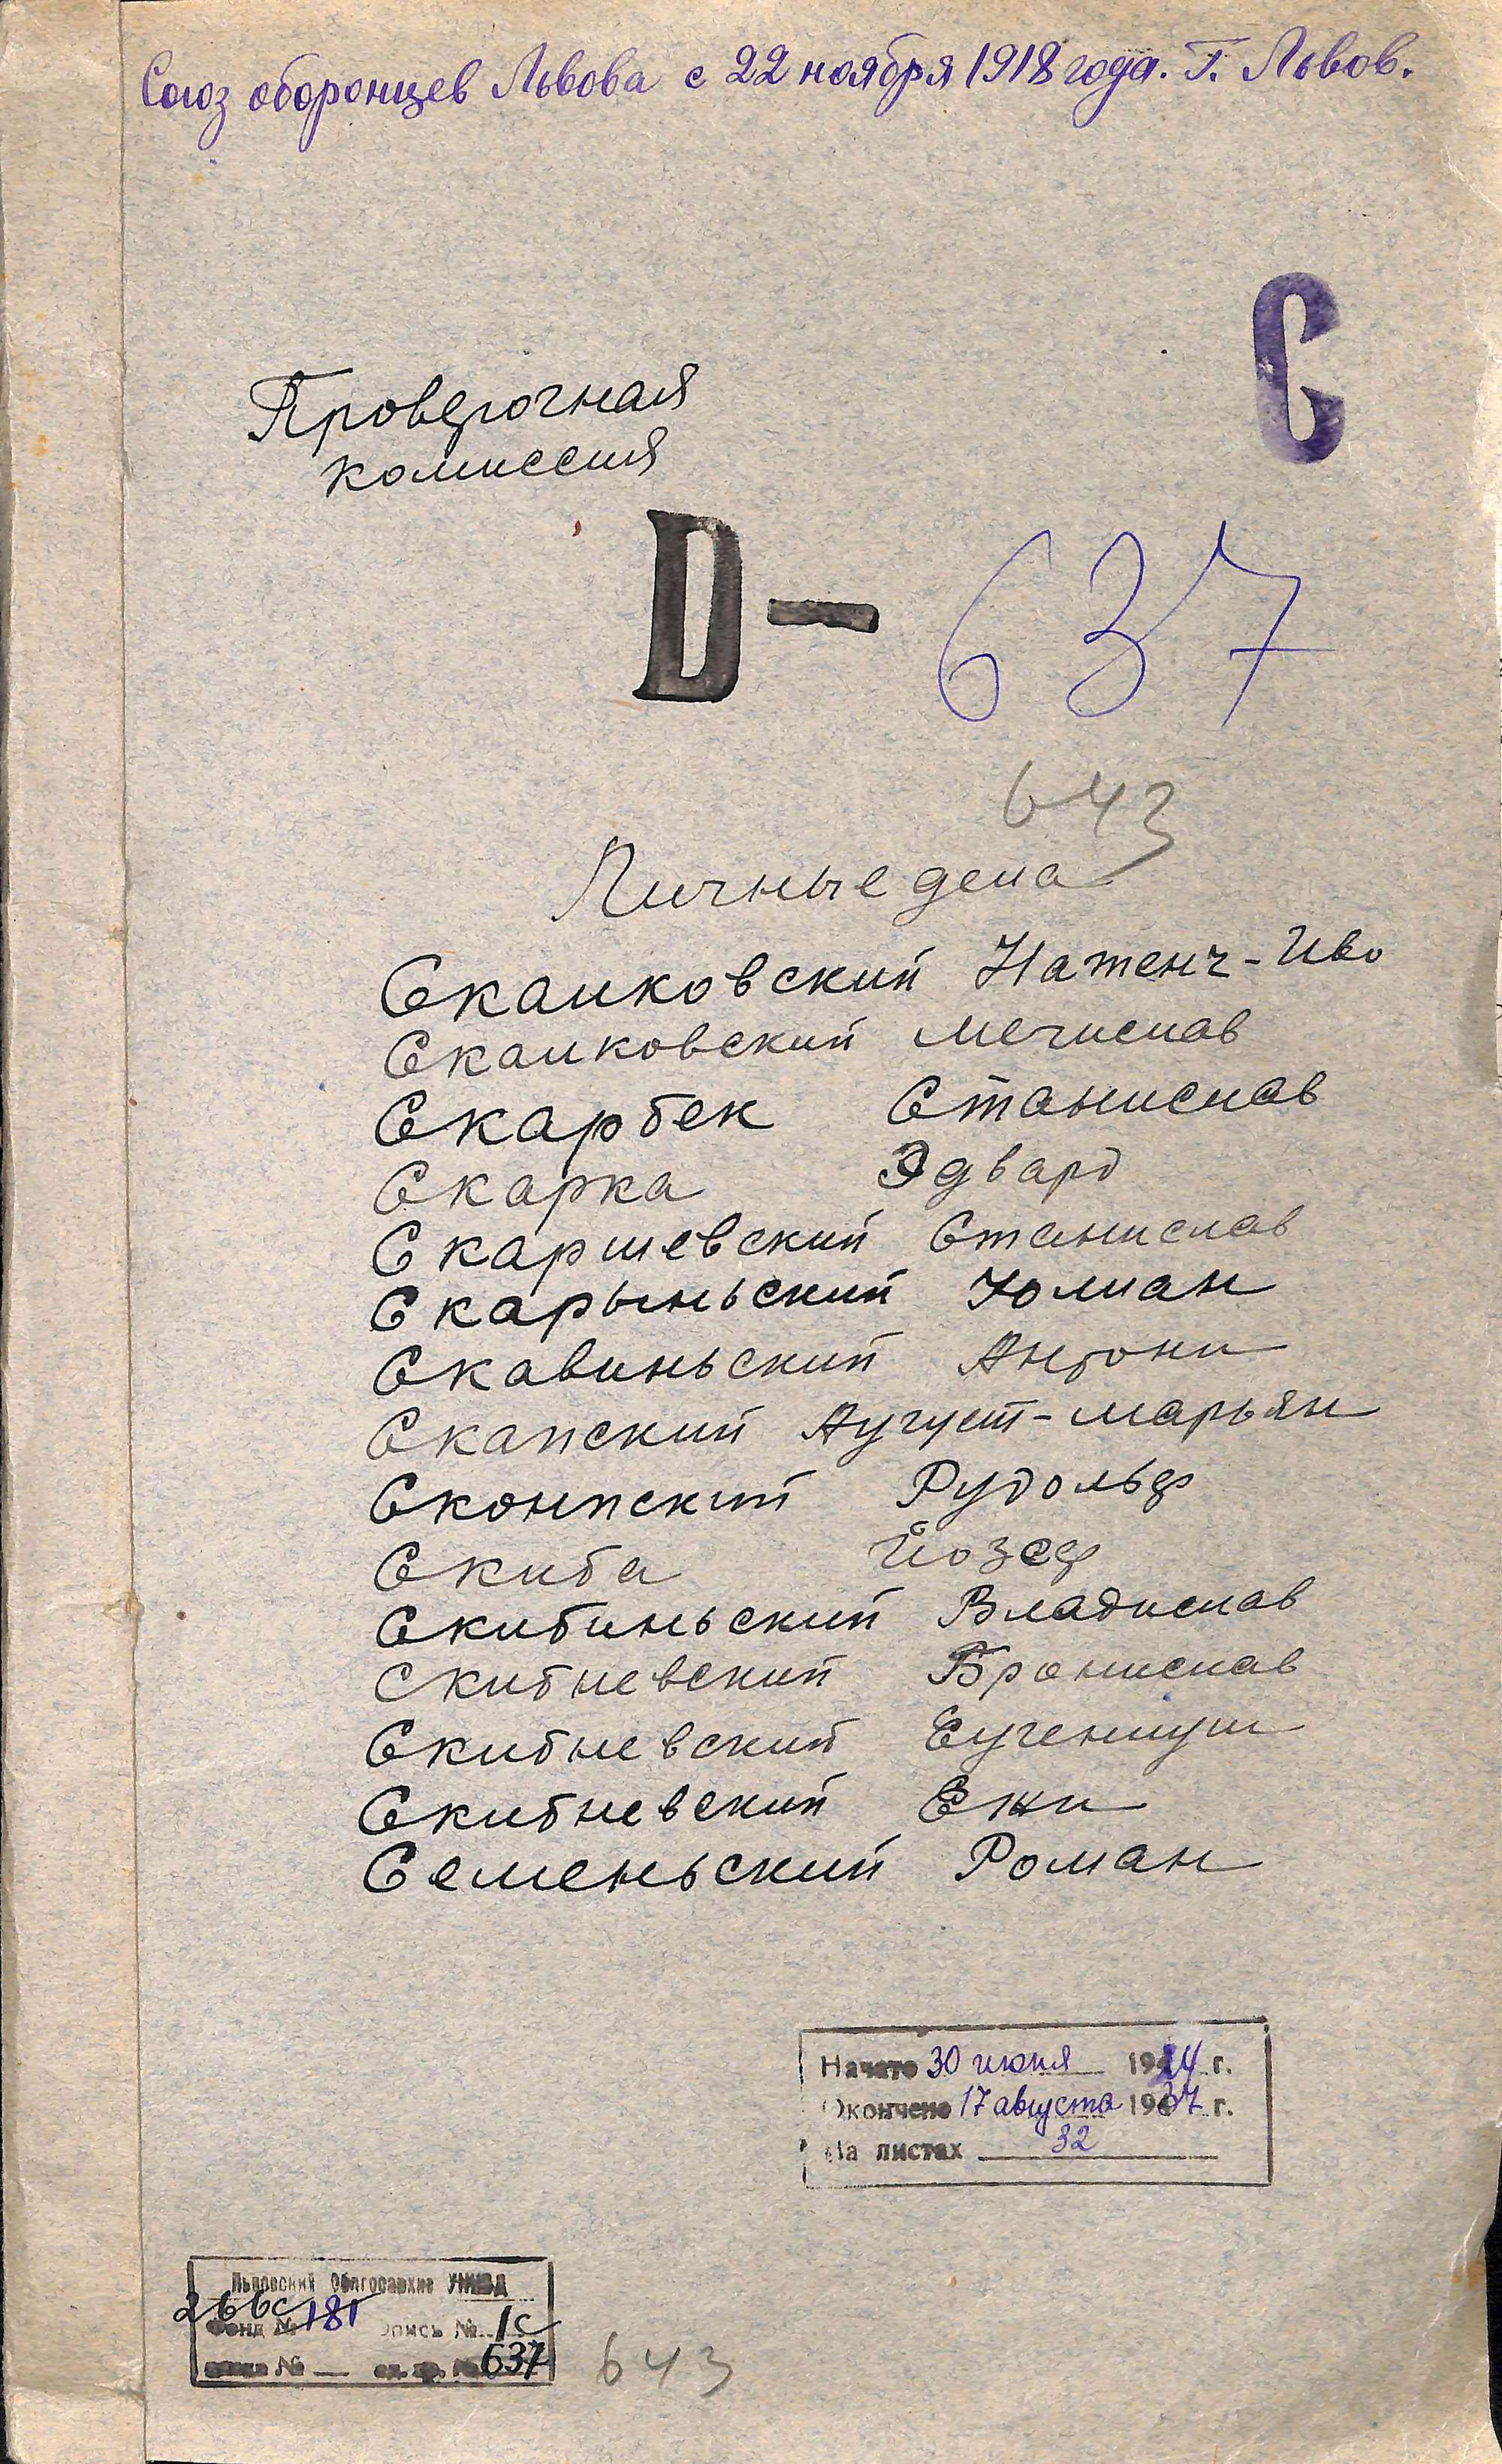 Союз оборонцев Львова с 22 ноября 1918 года. Г. Львов.
С
Проверочная
комиссия
D- 637
643
Личные дела
Скалковский Натенч-Иво
Скалковский Мечислав
Скарбек Станислав
Скарка Эдвард
Скаршевский Станислав
Скарыньский Юлиан
Скавиньский Антони
Скапский Аугуст-Марьян
Сконпский Рудольф
Скиба Йозеф
Скибиньский Владислав
Скибневский Бронислав
Скибневский Еугениуш
Скибневский Ежи
Семеньский Роман
Начато 30 июня 1924 г.
Окончено 17 августа 1937 г.
На листах 32
Львовский Облгосархив УМВД
266с
Фонд № 181 Опись № 1с
№ — ед. хр. № 637
643